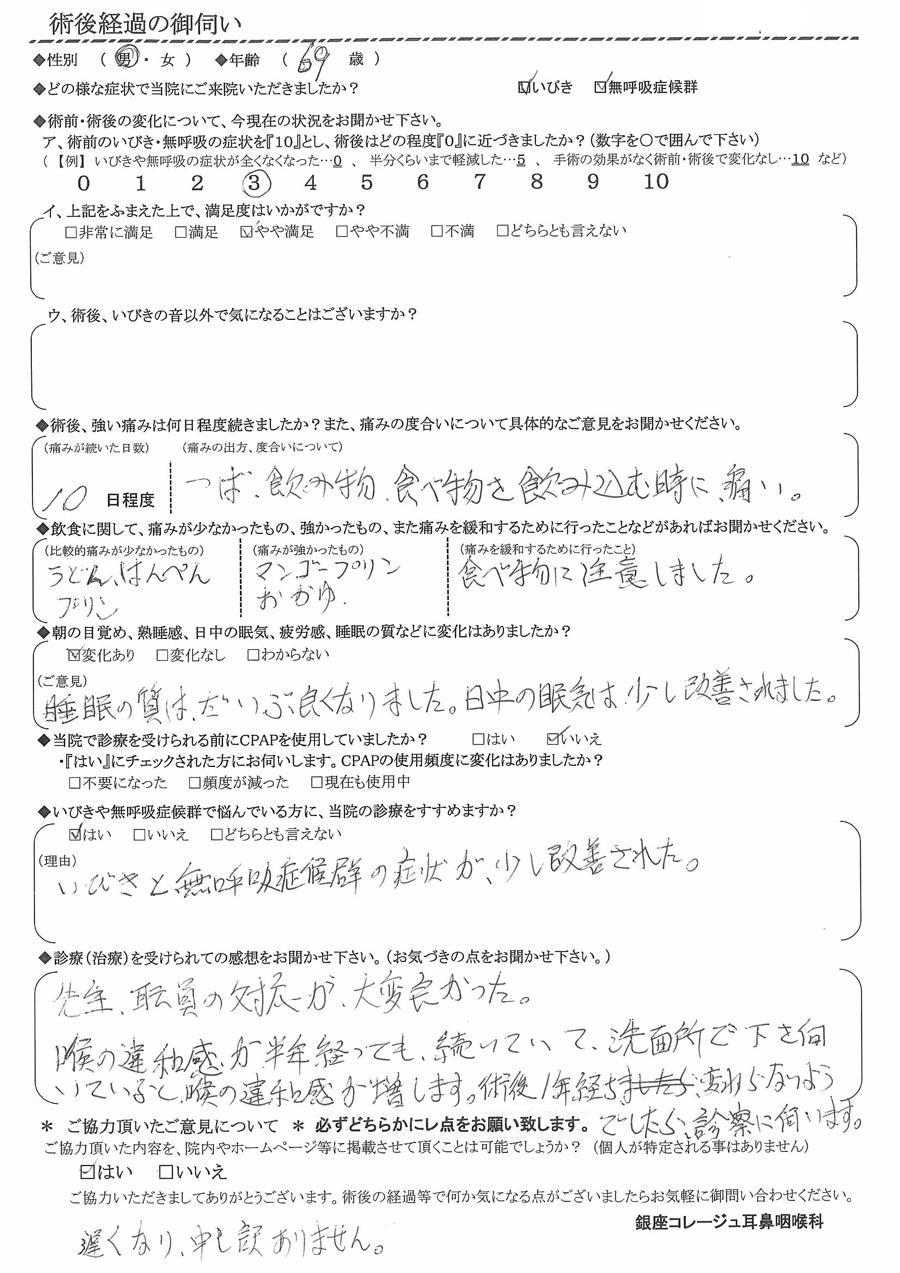 術後経過の御伺い
◆性別 （ 男 ・ 女 ） ◆年齢 （ 69 歳 ）
◆どの様な症状で当院にご来院いただきましたか？ ☑いびき ☑無呼吸症候群
◆術前・術後の変化について、今現在の状況をお聞かせ下さい。
ア、術前のいびき・無呼吸の症状を『10』とし、術後はどの程度『0』に近づきましたか？（数字を○で囲んで下さい）
（ 【例】 いびきや無呼吸の症状が全くなくなった…0 、 半分くらいまで軽減した…5 、 手術の効果がなく術前・術後で変化なし…10 など）
0 1 2 3 4 5 6 7 8 9 10
イ、上記をふまえた上で、満足度はいかがですか？
□非常に満足 □満足 ☑やや満足 □やや不満 □不満 □どちらとも言えない
（ご意見）
ウ、術後、いびきの音以外で気になることはございますか？
◆術後、強い痛みは何日程度続きましたか？また、痛みの度合いについて具体的なご意見をお聞かせください。
（痛みが続いた日数） （痛みの出方、度合いについて）
10 日程度 つば、飲み物、食べ物を飲み込む時に、痛い。
◆飲食に関して、痛みが少なかったもの、強かったもの、また痛みを緩和するために行ったことなどがあればお聞かせください。
（比較的痛みが少なかったもの） （痛みが強かったもの） （痛みを緩和するために行ったこと）
うどん、はんぺん マンゴープリン 食べ物に注意しました。
プリン おかゆ.
◆朝の目覚め、熟睡感、日中の眠気、疲労感、睡眠の質などに変化はありましたか？
☑変化あり □変化なし □わからない
（ご意見）
睡眠の質は、だいぶ良くなりました。日中の眠気は、少し改善されました。
◆当院で診療を受けられる前にCPAPを使用していましたか？ □はい ☑いいえ
・『はい』にチェックされた方にお伺いします。CPAPの使用頻度に変化はありましたか？
□不要になった □頻度が減った □現在も使用中
◆いびきや無呼吸症候群で悩んでいる方に、当院の診療をすすめますか？
☑はい □いいえ □どちらとも言えない
（理由）
いびきと無呼吸症候群の症状が、少し改善された。
◆診療（治療）を受けられての感想をお聞かせ下さい。（お気づきの点をお聞かせ下さい。）
先生、職員の対応が、大変良かった。
喉の違和感が半年経っても、続いていて、洗面所で下を向
いていると、喉の違和感が増します。術後1年経ちましたら、変わらないよう
＊ ご協力頂いたご意見について ＊ 必ずどちらかにレ点をお願い致します。 でしたら、診察に伺います。
ご協力頂いた内容を、院内やホームページ等に掲載させて頂くことは可能でしょうか？ （個人が特定される事はありません）
☑はい □いいえ
ご協力いただきましてありがとうございます。術後の経過等で何か気になる点がございましたらお気軽に御問い合わせください。
銀座コレージュ耳鼻咽喉科
遅くなり、申し訳ありません。